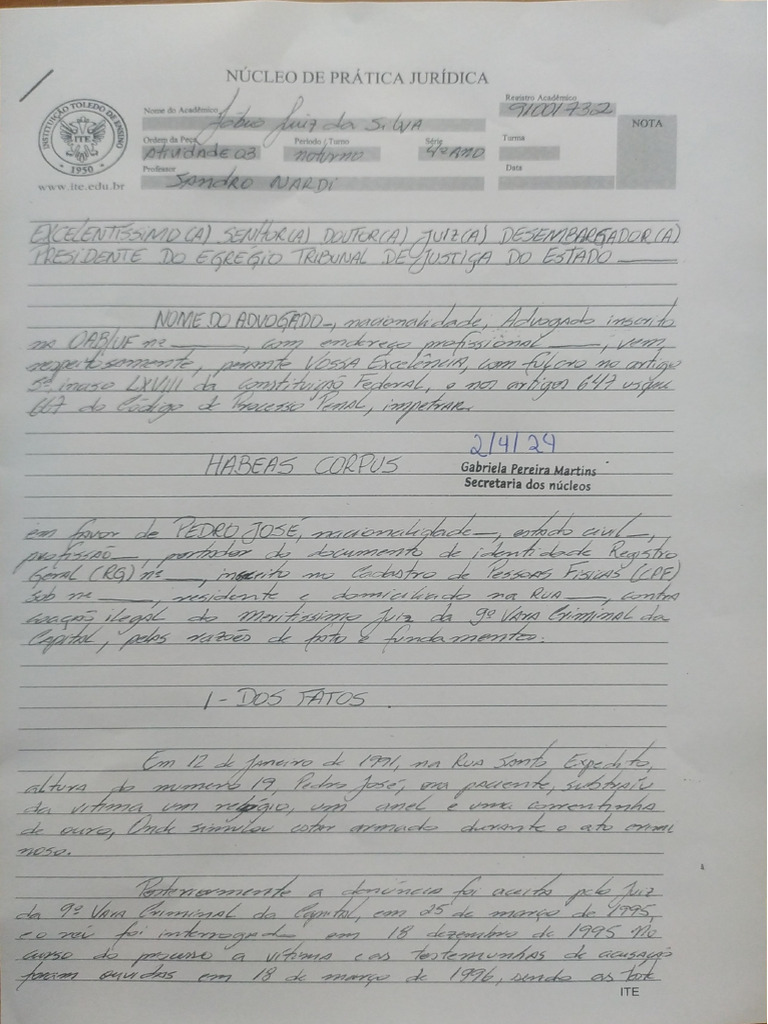 NÚCLEO DE PRÁTICA JURÍDICA
INSTITUIÇÃO TOLEDO DE ENSINO
ITE
1950
www.ite.edu.br
Nome do Acadêmico Fábio Luiz da Silva
Registro Acadêmico 91001732
Ordem da Peça Atividade 03
Período / Turno noturno
Série 4º ANO
Turma
NOTA
Professor SANDRO NARDI
Data
EXCELENTÍSSIMO(A) SENHOR(A) DOUTOR(A) JUIZ(A) DESEMBARGADOR(A)
PRESIDENTE DO EGRÉGIO TRIBUNAL DE JUSTIÇA DO ESTADO ____
NOME DO ADVOGADO_, nacionalidade, Advogado inscrito
na OAB/UF nº ____, com endereço profissional ____, vem,
respeitosamente, perante VOSSA Excelência, com fulcro no artigo
5º, inciso LXVIII da Constituição Federal, e nos artigos 647 usque
667 do Código de Processo Penal, impetrar.
HABEAS CORPUS
2/4/24
Gabriela Pereira Martins
Secretaria dos núcleos
em favor de PEDRO JOSÉ, nacionalidade_, estado civil_,
profissão_, portador do documento de identidade Registro
Geral (RG) nº ___, inscrito no Cadastro de Pessoas Físicas (CPF)
sob nº ____, residente e domiciliado na RUA ___, contra
coação ilegal do Meritíssimo Juiz da 9ª Vara Criminal da
Capital, pelas razões de fato e fundamentos.
I - DOS FATOS.
Em 12 de Janeiro de 1991, na Rua Santo Expedito,
altura do numero 19, Pedro José, ora paciente, subtraiu
da vítima um relógio, um anel e uma correntinha
de ouro, Onde simulou estar armado durante o ato crimi
noso.
Posteriormente a denúncia foi aceita pelo Juiz
da 9ª Vara Criminal da Capital, em 25 de março de 1995,
e o réu foi interrogado em 18 dezembro de 1995 No
curso do processo a vítima e as testemunhas de acusação
foram ouvidas em 18 de março de 1996, sendo as teste
ITE